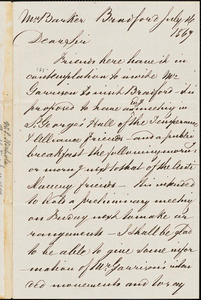 Mrs Barker Bradford July 14
1867
Dear Sir
Friends here have it in
contemplation to invite Mr
Garrison to visit Bradford. It is
proposed to have an evening meeting in
St. George's Hall of the Temperance
& Alliance friends — and a public
breakfast the following morning
or morng next to that of the Anti
Slavery friends — It is intended
to hold a preliminary meeting
on Friday next to make ar
rangements — I shall be glad
to be able to give some infor
mation of Mr Garrison's inten
ded movements and to say